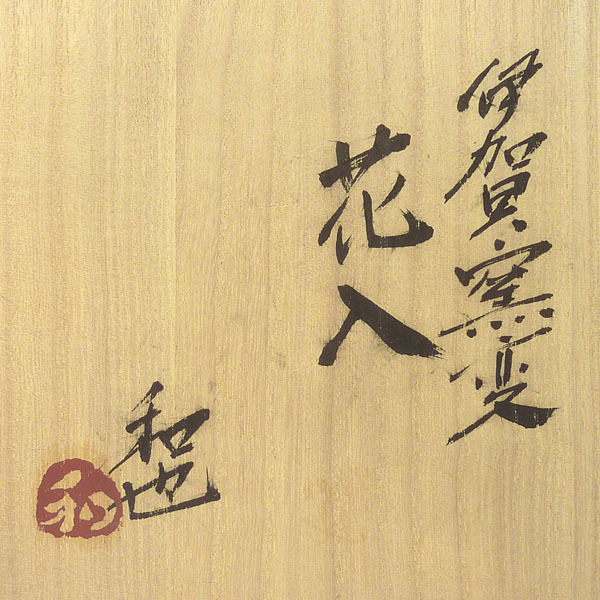 伊賀窯変
花入
和也
和